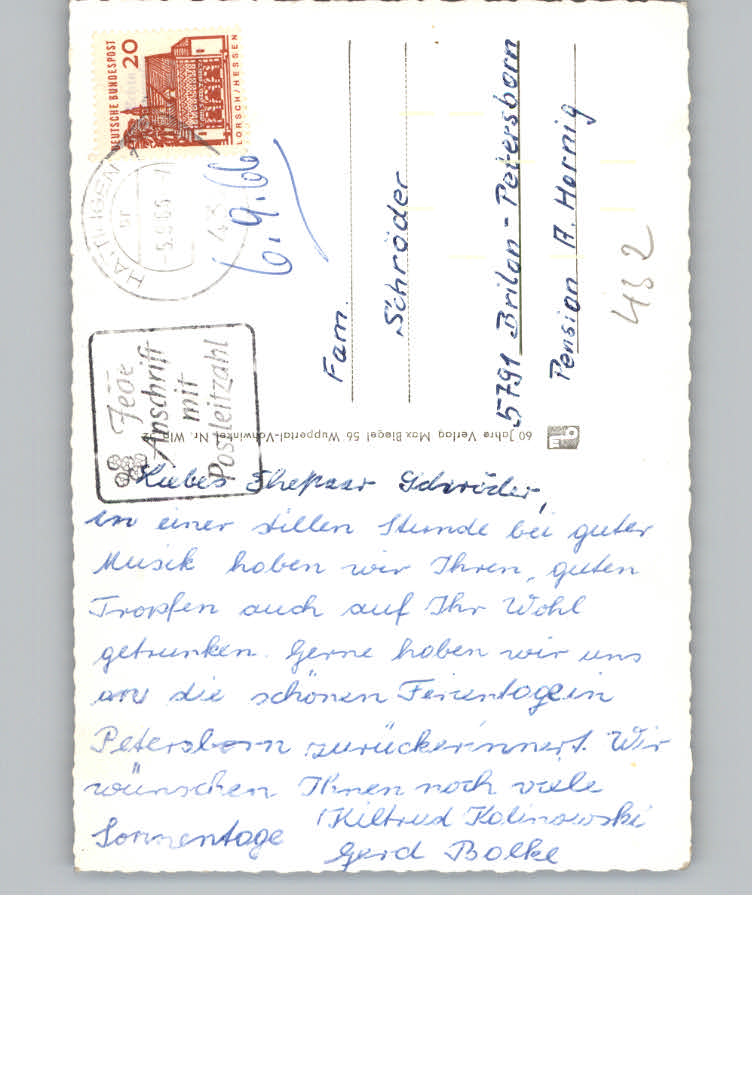 DEUTSCHE BUNDESPOST
20
LORSCH/HESSEN
HATTINGEN
-5.9.66-7
43
6.9.66
Jede
Anschrift
mit
Postleitzahl
Fam.
Schröder
5791 Brilon-Petersborn
Pension A. Hornig
432
60 Jahre Verlag Max Biegel 56 Wuppertal-Vohwinkel Nr.
Liebes Ehepaar Schröder,
in einer stillen Stunde bei guter
Musik haben wir Ihren guten
Tropfen auch auf Ihr Wohl
getrunken. Gerne haben wir uns
an die schönen Ferientage in
Petersborn zurückerinnert. Wir
wünschen Ihnen noch viele
Sonnentage
Hiltrud Kalinowski
Gerd Bolke